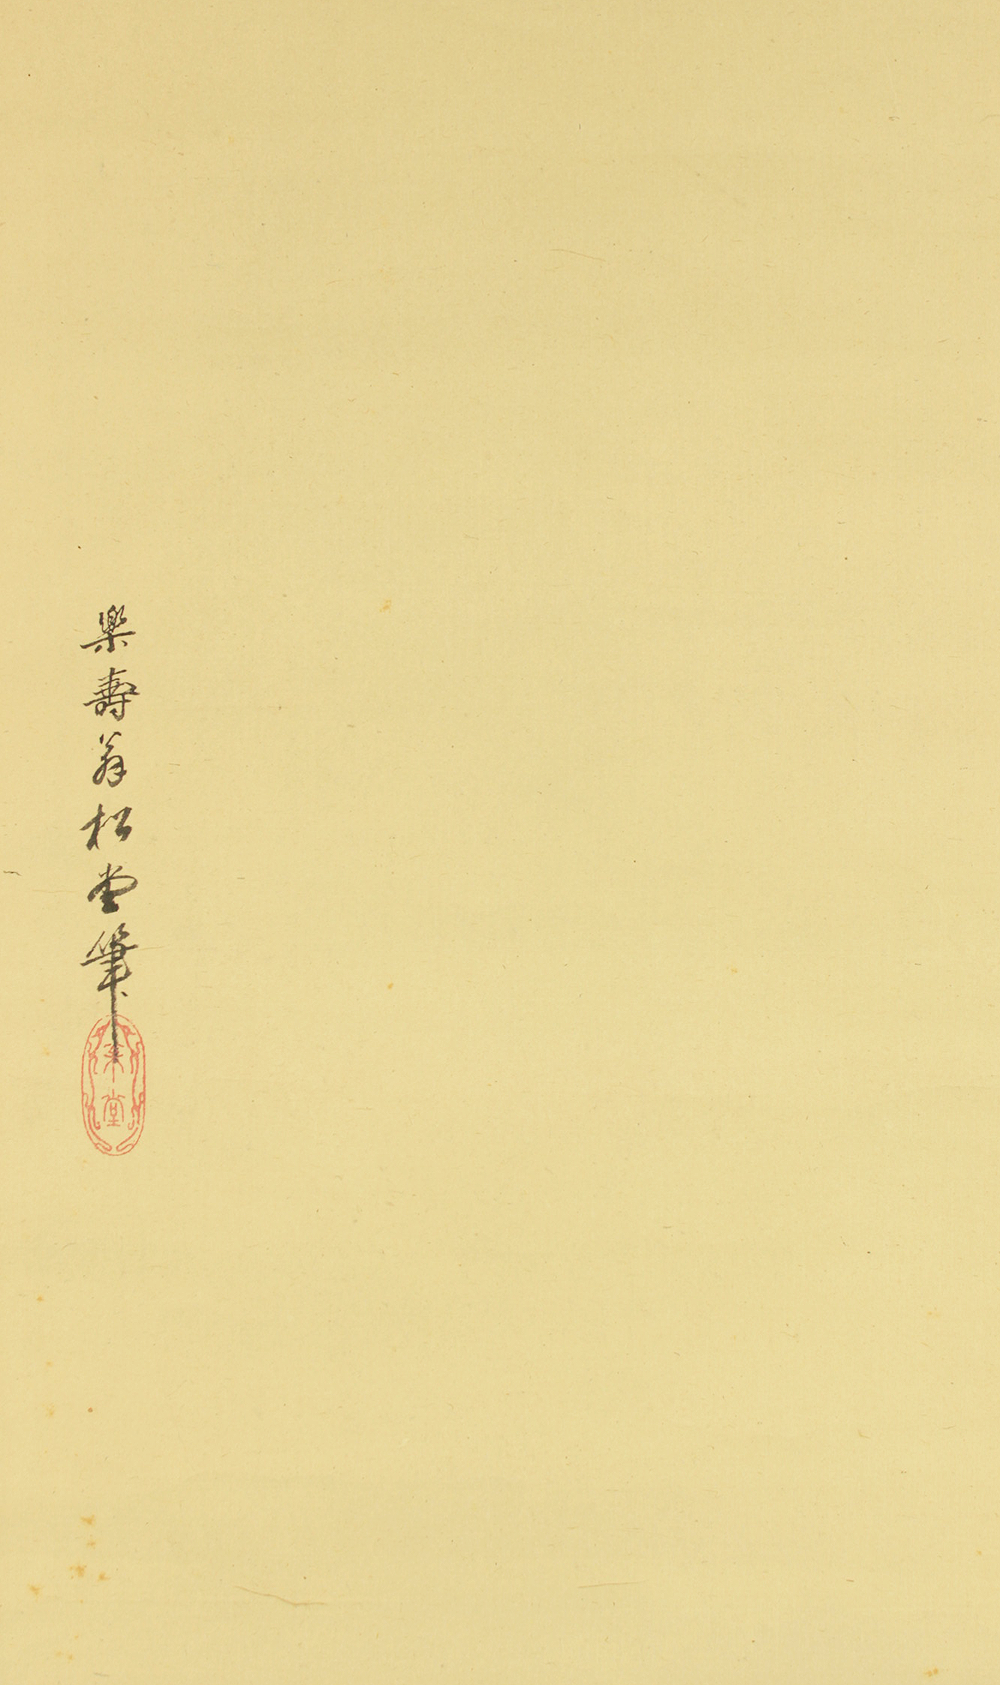 樂壽翁松堂筆
堂